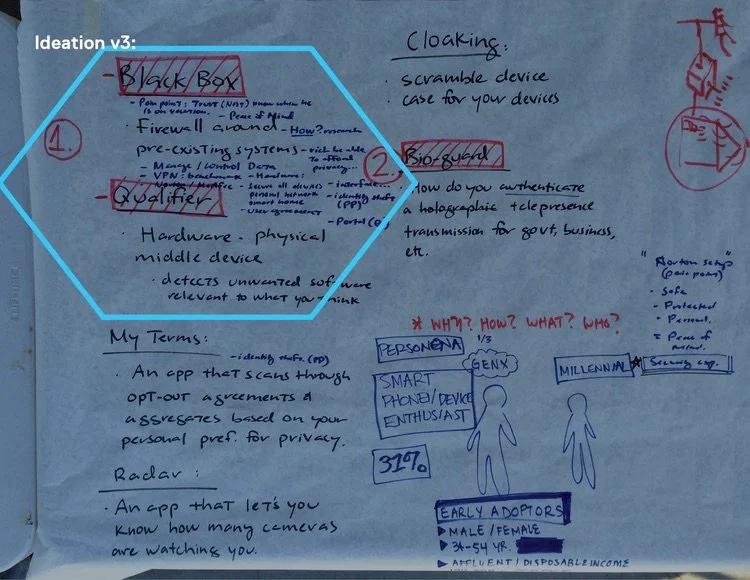 Ideation v3:
1.
- Black Box
- Pain point: Trust (NOT) know when he
is on vacation. - Peace of Mind
· Firewall around - How? research
pre-existing systems - rich be able
To afford
privacy...
- Manage / Control Data
- VPN: benchmark - Hardware:
Norton / McAfee - Secure all devices
personal network
smart home
- user agreement
- interface...
- identity theft
(PP)
- Portal
- Qualifier
· Hardware - physical
middle device
· detects unwanted software
relevant to what you think
My Terms:
- identity theft. (PP)
· An app that scans through
opt-out agreements &
aggregates based on your
personal pref. for privacy.
Radar:
· An app that let's you
know how many cameras
are watching you.
Cloaking:
· scramble device
· case for your devices
2.
Bio-guard
· How do you authenticate
a holographic telepresence
transmission for govt, business,
etc.
"Norton setup"
(pain point)
- Safe
- Protected
- Personal.
= Peace of
mind.
* WHY? HOW? WHAT? WHO?
PERSONA
1/3
GENX
SMART
PHONE/DEVICE
ENTHUSIAST
31%
MILLENNIAL *
Security exp.
EARLY ADOPTORS
▶ MALE / FEMALE
▶ 34-54 YR.
▶ AFFLUENT / DISPOSABLE INCOME